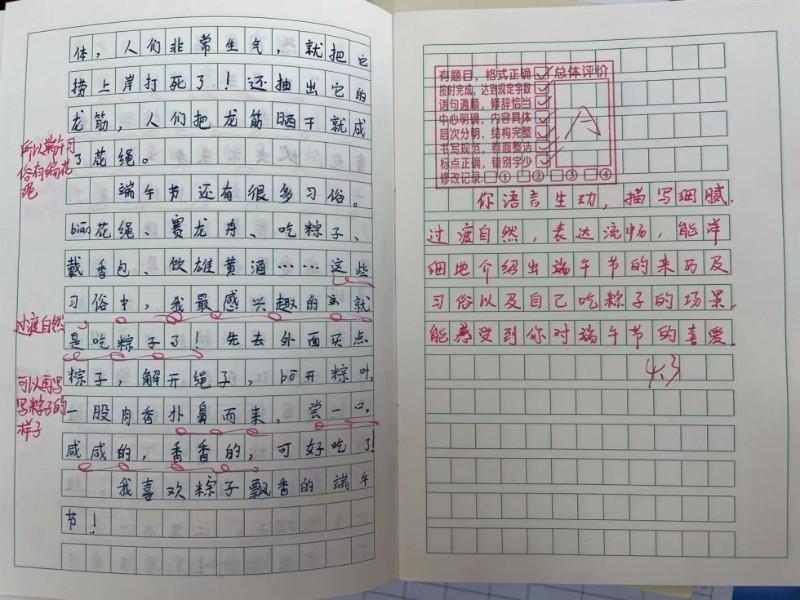 体，人们非常生气，就把它
捞上岸打死了！还抽出它的
龙筋，人们把龙筋晒干就成
了花绳。
端午节还有很多习俗。
biān花绳、赛龙舟、吃粽子、
戴香包、饮雄黄酒……这些
习俗中，我最感兴趣的就
是吃粽子了！先去外面买点
粽子，解开绳子，bō开粽叶，
一股肉香扑鼻而来，尝一口，
咸咸的，香香的，可好吃了！
我喜欢粽子飘香的端午
节！
所以端午习
俗有编花
绳
过渡自然
可以再写
写粽子的
样子
有题目，格式正确
按时完成，达到规定字数
语句通顺，修辞恰当
中心明确，内容具体
层次分明，结构完整
书写规范，卷面整洁
标点正确，错别字少
修改记录：①②③④
总体评价
A
你语言生动，描写细腻，
过渡自然，表达流畅，能详
细地介绍出端午节的来历及
习俗以及自己吃粽子的场景，
能感受到你对端午节的喜爱。